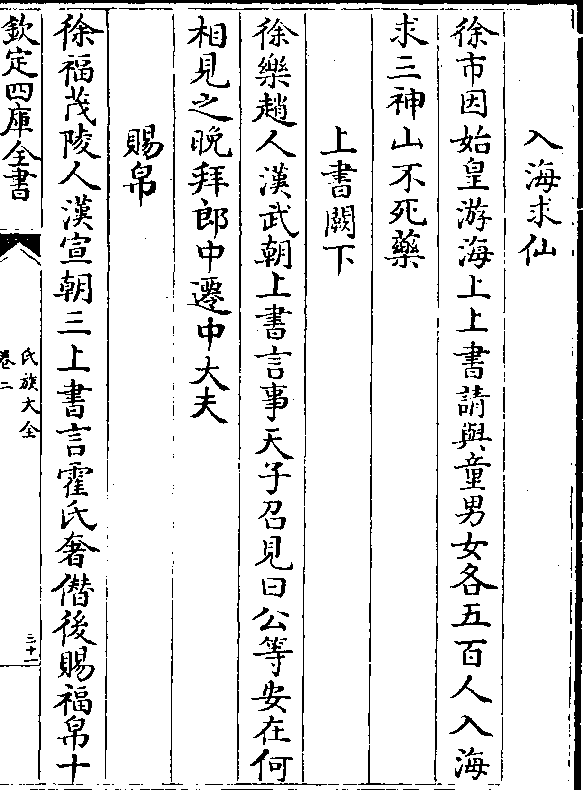 入海求仙
徐市因始皇游海上上書請與童男女各五百人入海
求三神山不死藥
上書闕下
徐樂趙人漢武朝上書言事天子召見曰公等安在何
相見之晚拜郎中遷中大夫
賜帛
徐福茂陵人漢宣朝三上書言霍氏奢僭後賜福帛十
欽定四庫全書
氏族大全
卷二
三十二